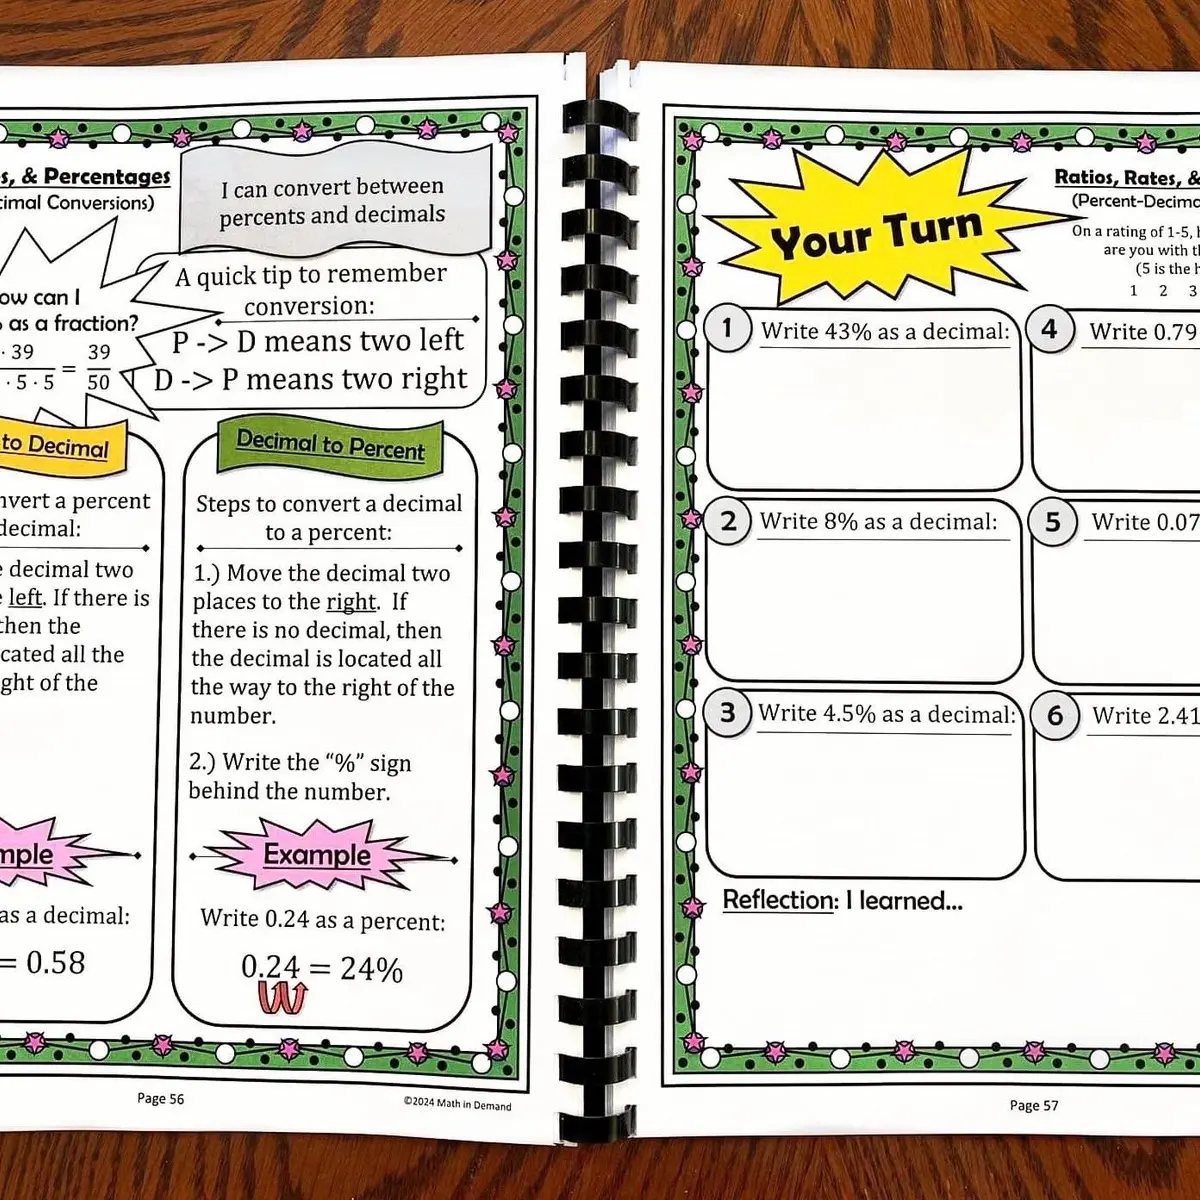 & Percentages
Conversions)
I can convert between
percents and decimals
can I
as a fraction?
· 39
· 5 · 5
=
39
50
A quick tip to remember
conversion:
P -> D means two left
D -> P means two right
to Decimal
a percent
decimal:
decimal two
left. If there is
then the
all the
of the
as a decimal:
= 0.58
Decimal to Percent
Steps to convert a decimal
to a percent:
1.) Move the decimal two
places to the right. If
there is no decimal, then
the decimal is located all
the way to the right of the
number.
2.) Write the “%” sign
behind the number.
Example
Write 0.24 as a percent:
0.24 = 24%
Page 56
©2024 Math in Demand
Your Turn
Ratios, Rates, &
On a rating of 1-5,
are you with
(5 is the
1 2 3
1 Write 43% as a decimal:
2 Write 8% as a decimal:
3 Write 4.5% as a decimal:
4 Write 0.79
5 Write 0.07
6 Write 2.41
Reflection: I learned...
Page 57